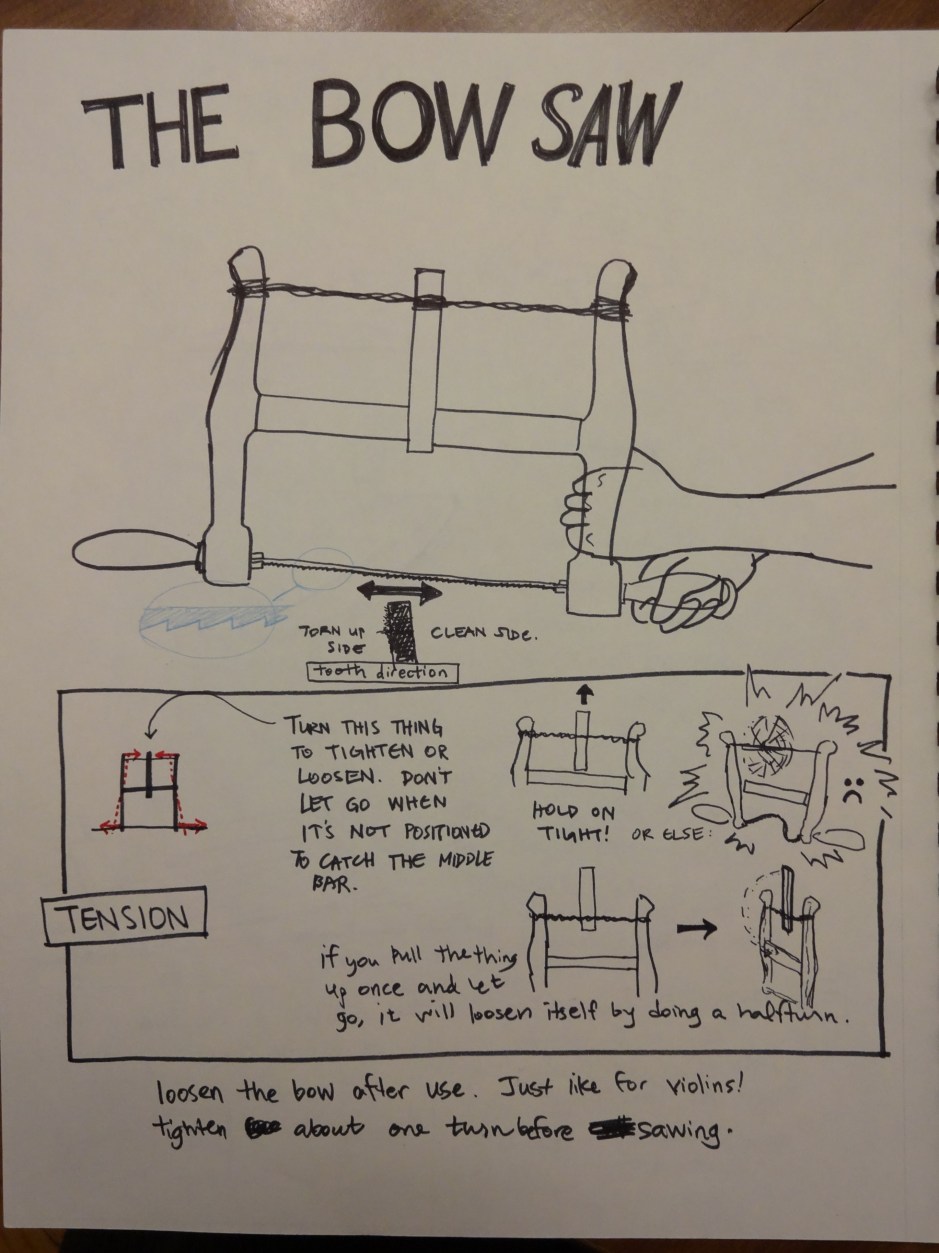 THE BOW SAW
TORN UP
SIDE
CLEAN SIDE.
tooth direction
TURN THIS THING
TO TIGHTEN OR
LOOSEN. DON'T
LET GO WHEN
IT'S NOT POSITIONED
TO CATCH THE MIDDLE
BAR.
HOLD ON
TIGHT! OR ELSE:
:(
TENSION
if you pull the thing
up once and let
go, it will loosen itself by doing a halfturn.
loosen the bow after use. Just like for violins!
tighten about one turn before sawing.